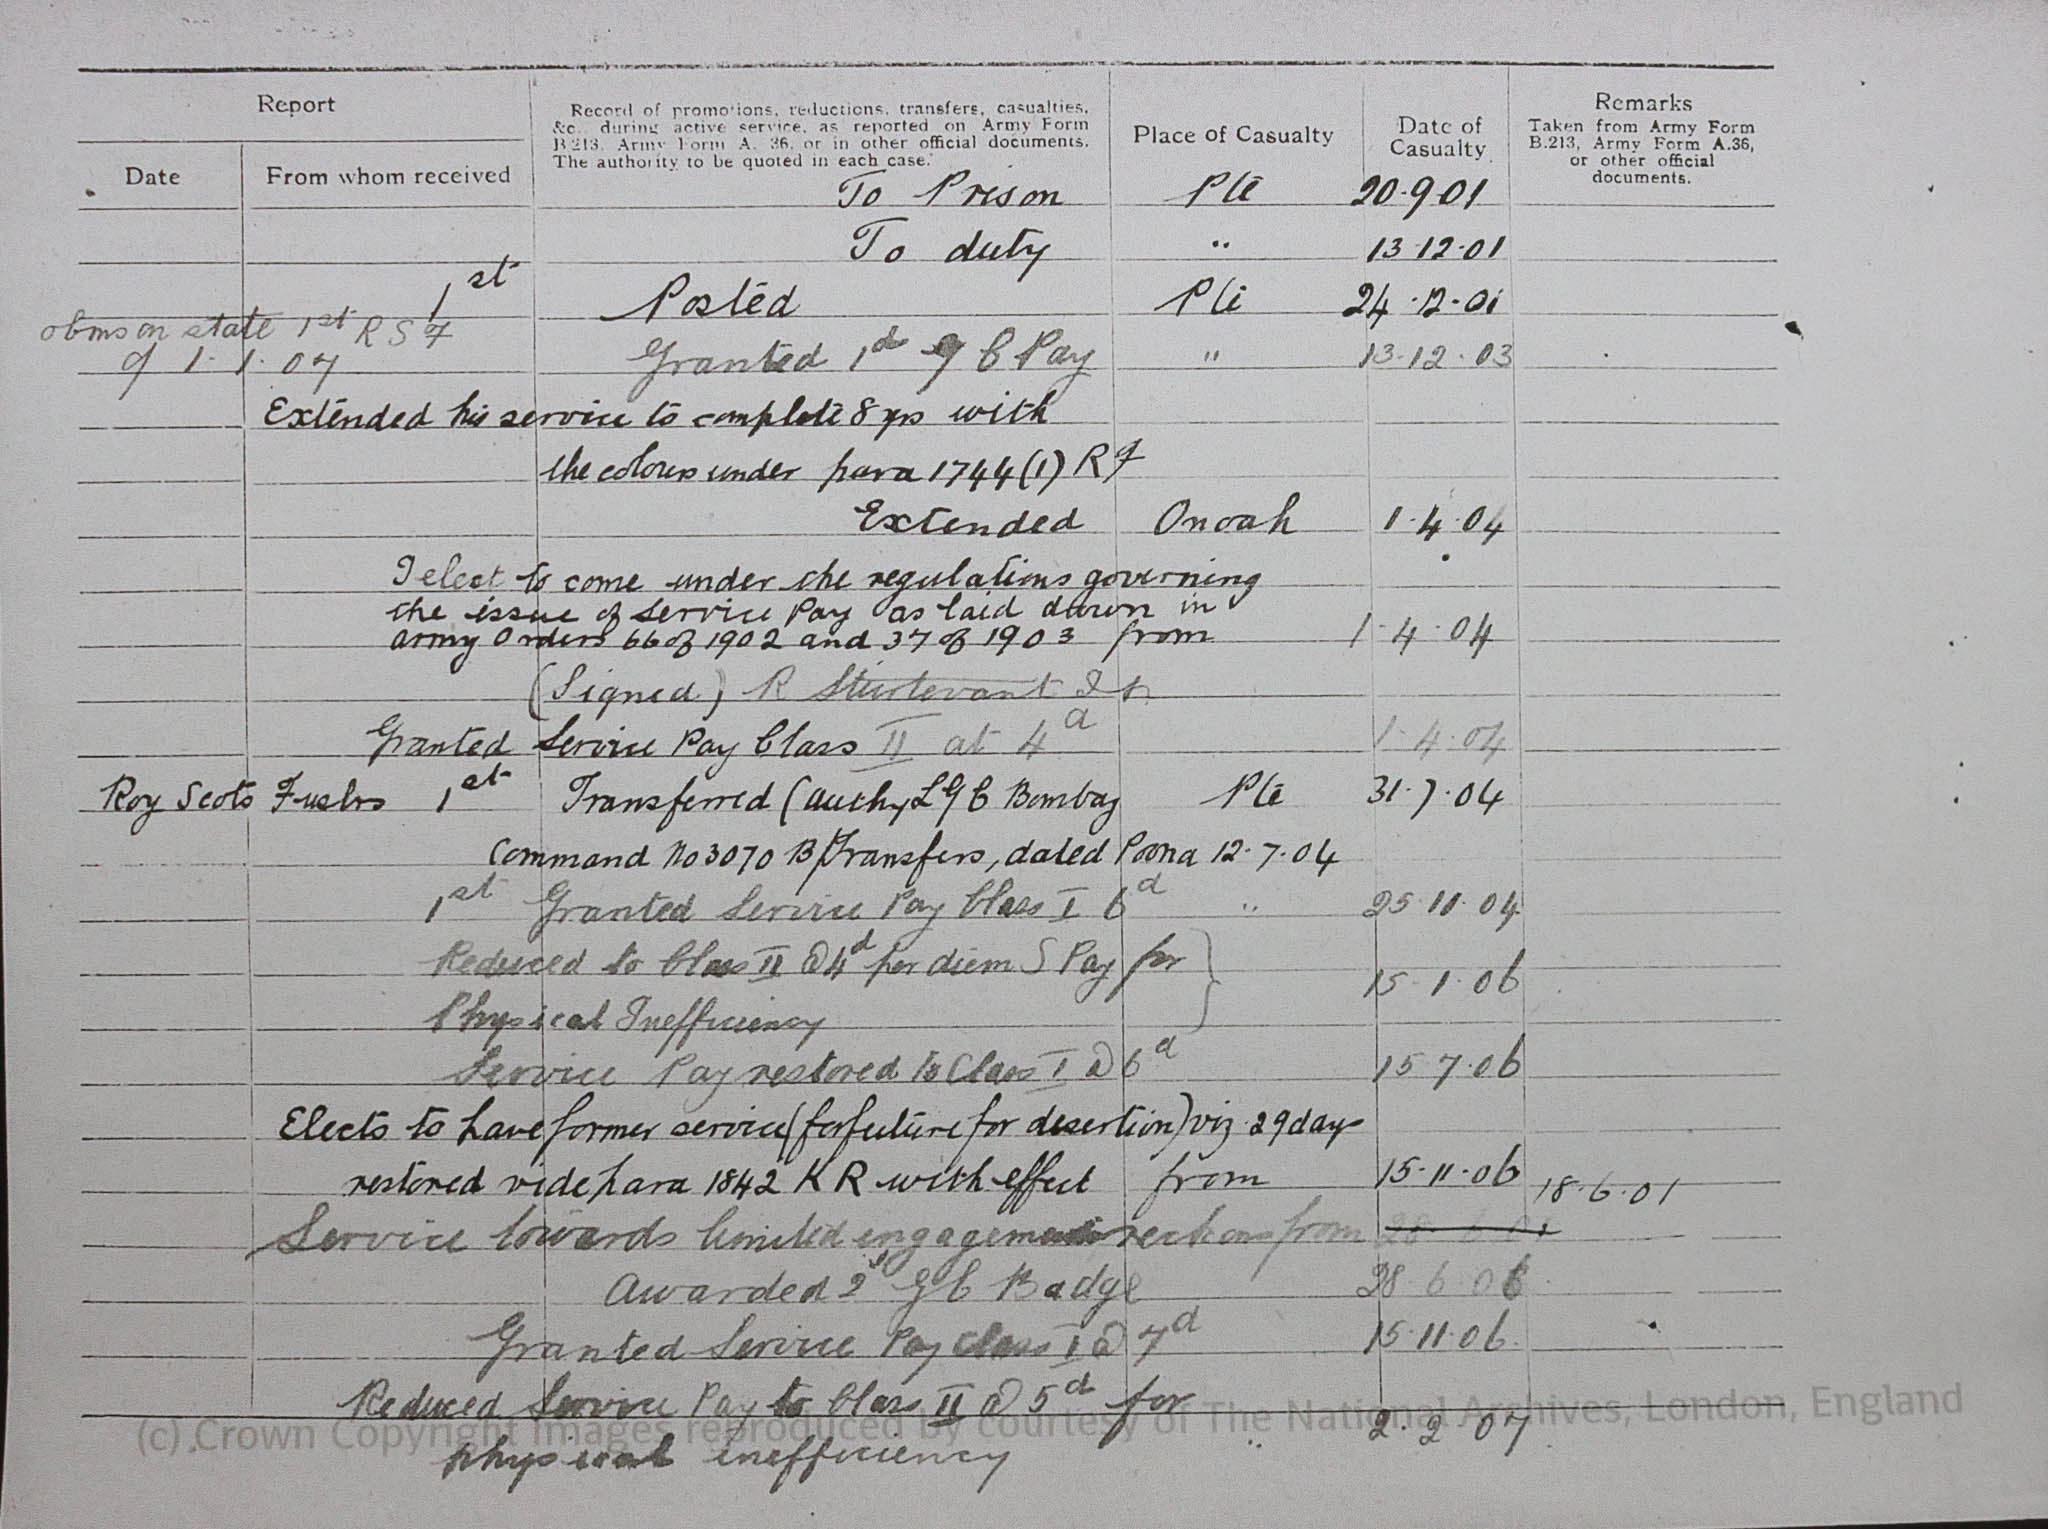 Report
Record of promotions, reductions, transfers, casualties,
&c. during active service, as reported on Army Form
B 213, Army Form A. 36, or in other official documents.
The authority to be quoted in each case.
Place of Casualty
Date of
Casualty
Remarks
Taken from Army Form
B.213, Army Form A.36,
or other official
documents.
Date
From whom received
To Prison Pte 20.9.01
To duty " 13.12.01
1st Posted Pte 24.12.01
state 1st R S F
of 1.1.07 Granted 1d G C Pay " 13.12.03
Extended his service to complete 8 yrs with
the colours under para 1744 (1) R
Extended 1.4.04
I elect to come under the regulations governing
the issue of Service Pay as laid down in
army Orders 66 of 1902 and 37 of 1903 from 1.4.04
(Signed) R Sturtevant
Granted Service Pay Class II at 4d 1.4.04
Roy Scots Fuslrs 1st Transferred (authy L G C Bombay Pte 31.7.04
Command No 3070 B/Transfers, dated Poona 12.7.04
1st Granted Service Pay Class I 6d " 25.11.04
Reduced to Class II @ 4d per diem S Pay for
Physical Inefficiency } 15.1.06
Service Pay restored to Class I @ 6d 15.7.06
Elects to have former service (forfeiture for desertion) viz 29 days
restored vide para 1842 K R with effect from 15.11.06 18.6.01
Service towards limited engagement reckons from
Awarded 2nd G C Badge 28.6.06
Granted Service Pay Class I @ 7d 15.11.06.
Reduced Service Pay to Class II @ 5d for
physical inefficiency " 2.2.07
(c) Crown Copyright Images reproduced by courtesy of The National Archives, London, England